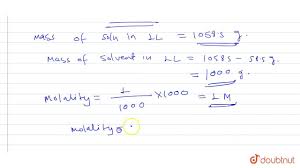 Mass of Soln in 1L = 1058.5 g.
Mass of Solvent in 1L = 1058.5 - 58.5
= 1000 g.
Molality = 1 / 1000 × 1000 = 1 M
Molality
doubtnut